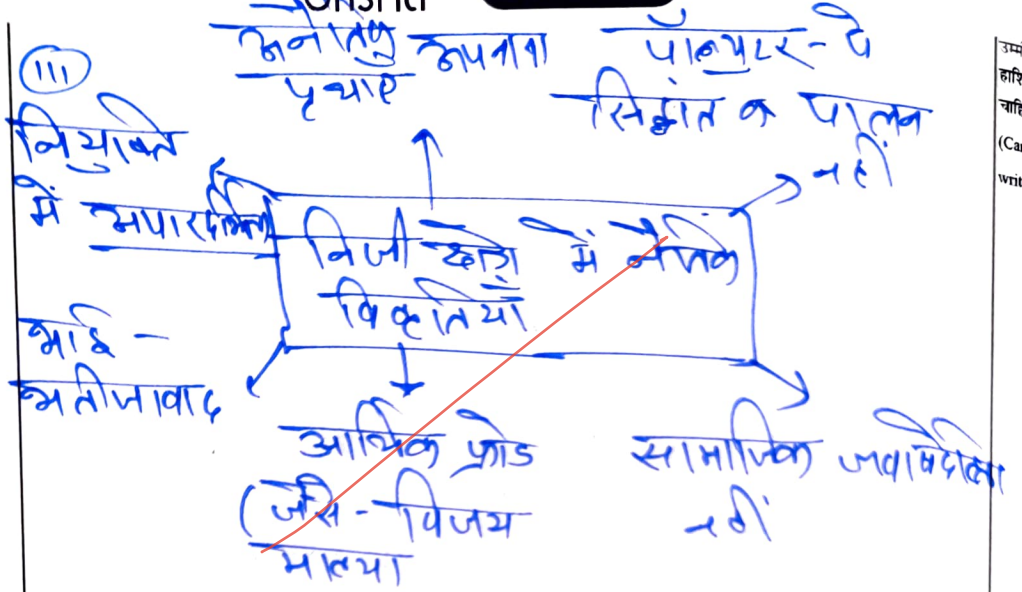 (iii)
अनैतिक अपनाना
प्रथाएं
पॉल्यूटर - पे
सिद्धांत का पालन
नहीं
नियुक्ति
में अपारदर्शिता
निजी क्षेत्रों में नैतिक
विकृतियाँ
भाई -
भतीजावाद
आर्थिक फ्रोड
(जैसे - विजय
माल्या
सामाजिक जवाबदेहिता
नहीं
हाशि
चाहि
(Car
writ